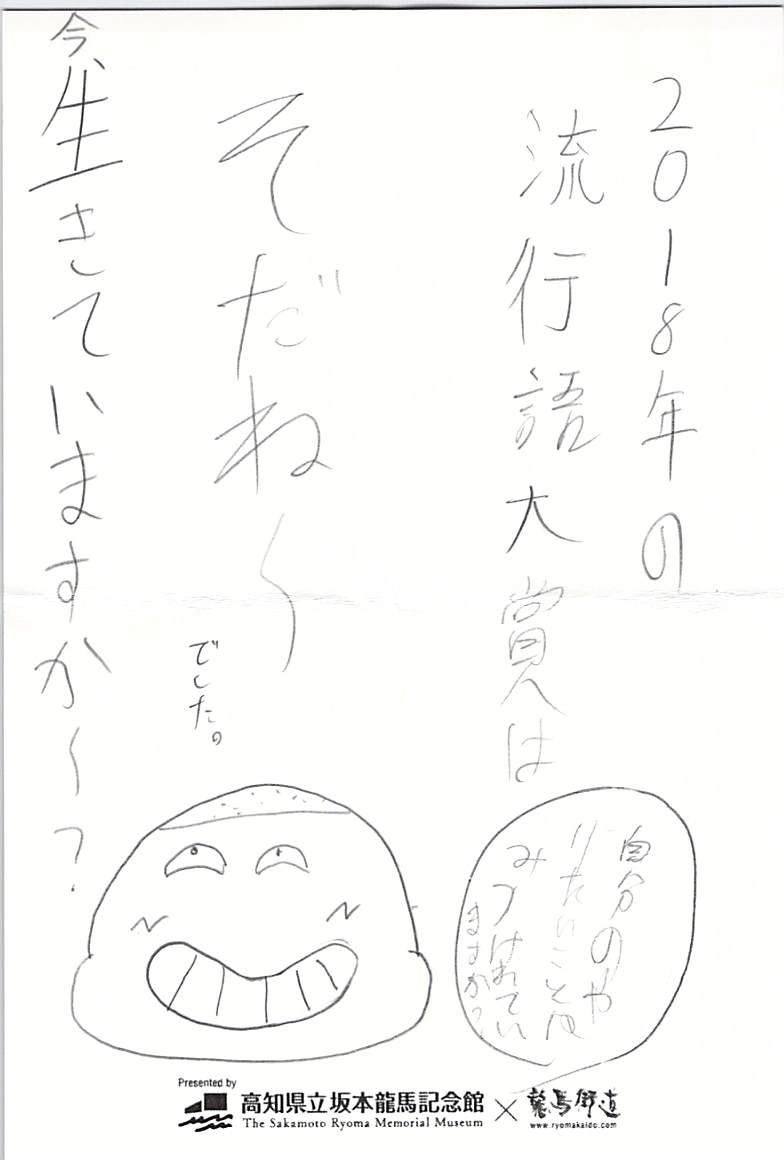 2018年の
流行語大賞は
そだね〜
でした。
今、生きていますか〜?
自分のや
りたいことは
みつけれてい
ますか?
Presented by
高知県立坂本龍馬記念館
The Sakamoto Ryoma Memorial Museum
×
龍馬街道
www.ryomakaido.com